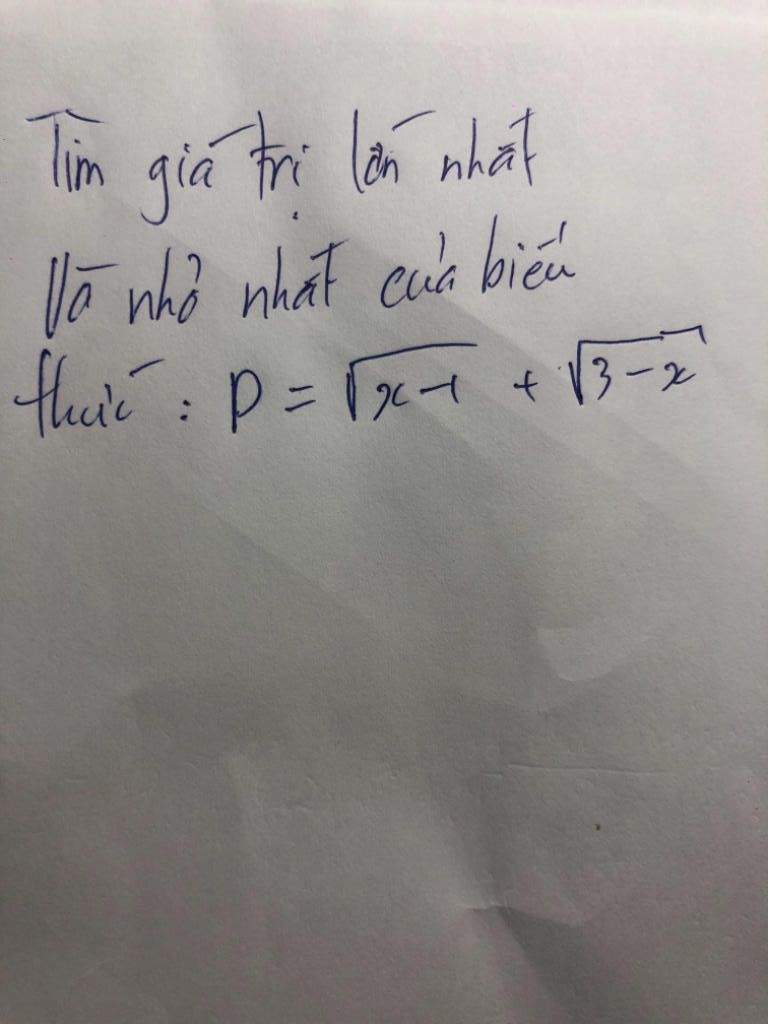 Tìm giá trị lớn nhất
Và nhỏ nhất của biểu
thức: P = √x-1 + √3-x